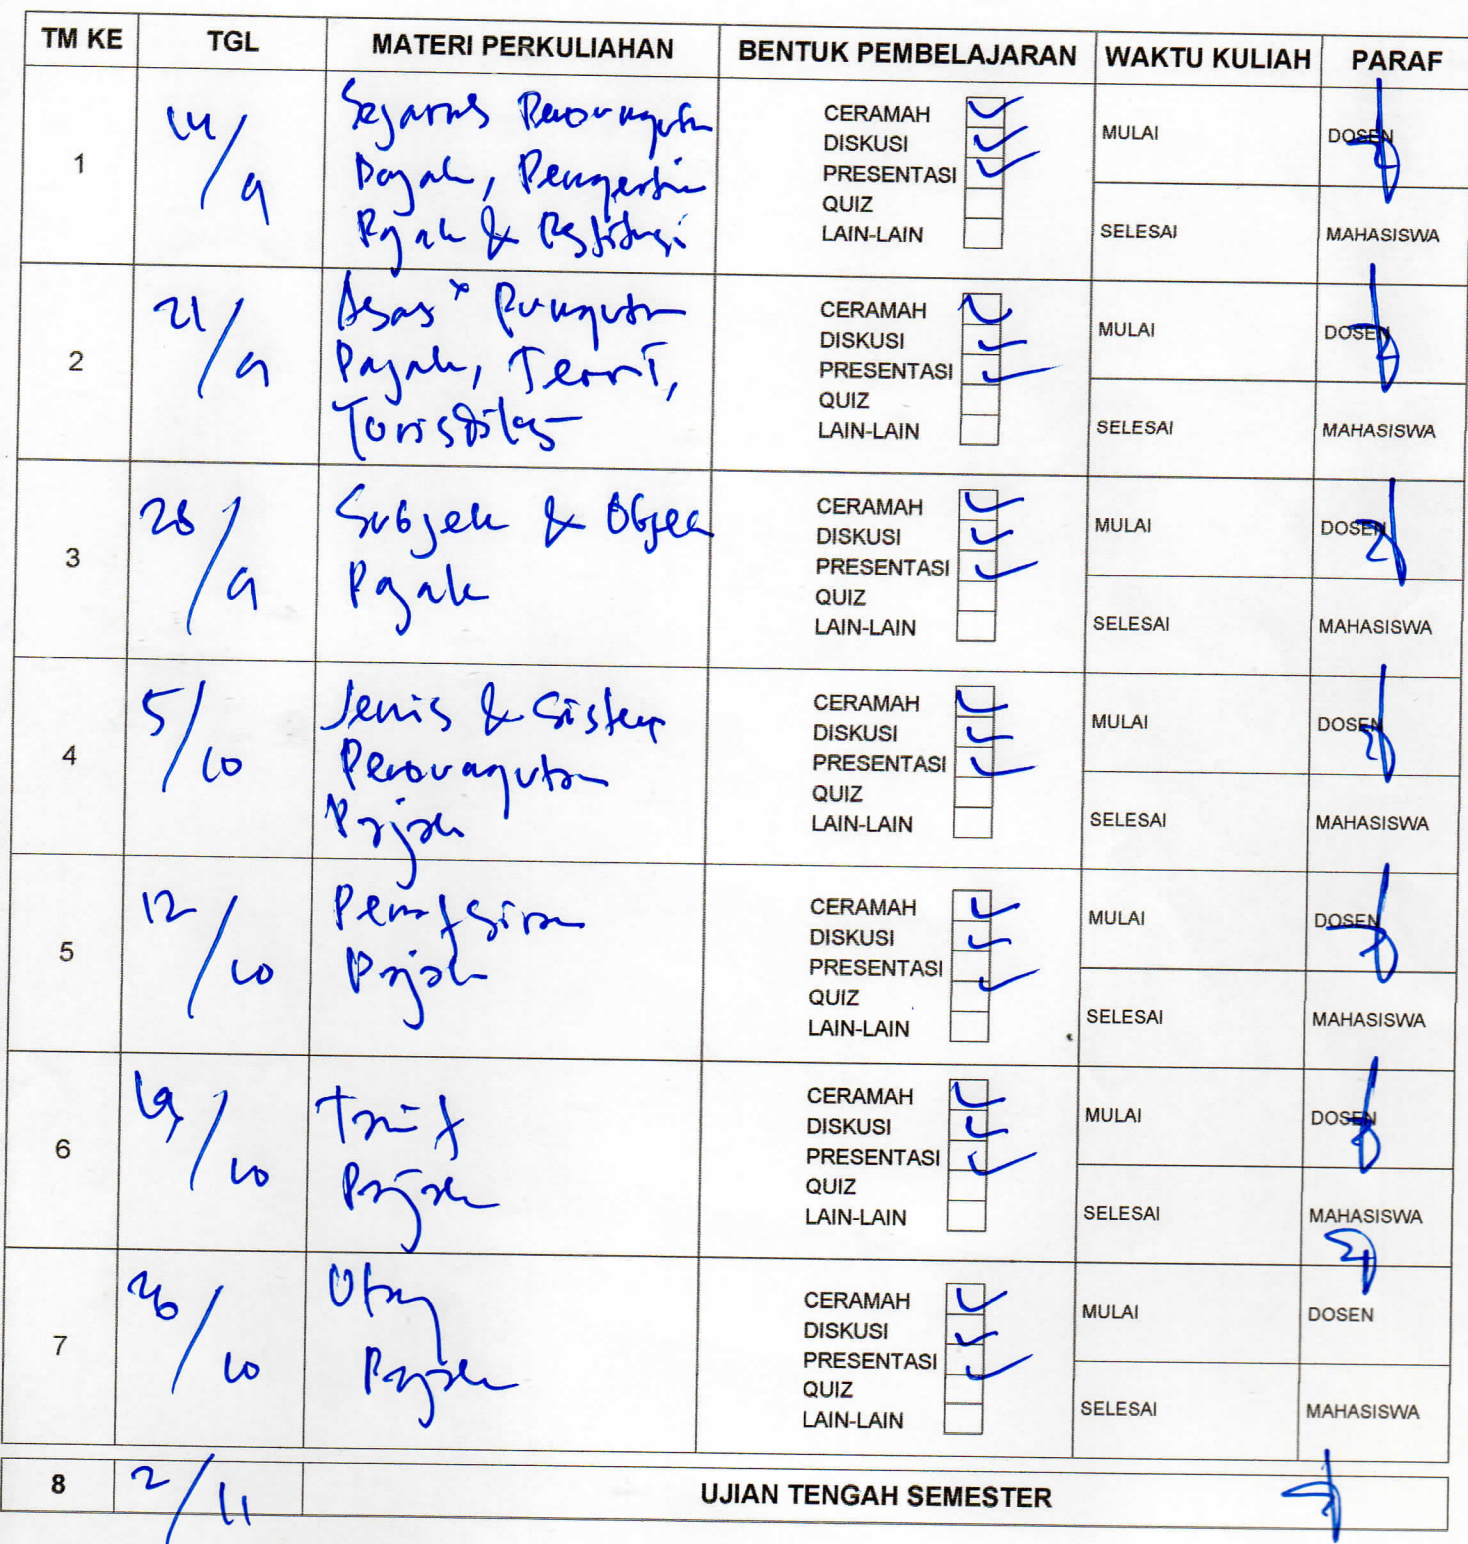 TM KE TGL MATERI PERKULIAHAN BENTUK PEMBELAJARAN WAKTU KULIAH PARAF
1
14/9
Sejarah Pemungutan
Pajak, Pengertian
Pajak & Restitusi
CERAMAH
DISKUSI
PRESENTASI
QUIZ
LAIN-LAIN
MULAI
SELESAI
DOSEN
MAHASISWA
2
21/9
Asas Pungutan
Pajak, Teori,
Yurisdiksi
CERAMAH
DISKUSI
PRESENTASI
QUIZ
LAIN-LAIN
MULAI
SELESAI
DOSEN
MAHASISWA
3
28/9
Subjek & Objek
Pajak
CERAMAH
DISKUSI
PRESENTASI
QUIZ
LAIN-LAIN
MULAI
SELESAI
DOSEN
MAHASISWA
4
5/10
Jenis & Sistem
Pemungutan
Pajak
CERAMAH
DISKUSI
PRESENTASI
QUIZ
LAIN-LAIN
MULAI
SELESAI
DOSEN
MAHASISWA
5
12/10
Penafsiran
Pajak
CERAMAH
DISKUSI
PRESENTASI
QUIZ
LAIN-LAIN
MULAI
SELESAI
DOSEN
MAHASISWA
6
19/10
Tarif
Pajak
CERAMAH
DISKUSI
PRESENTASI
QUIZ
LAIN-LAIN
MULAI
SELESAI
DOSEN
MAHASISWA
7
26/10
Utang
Pajak
CERAMAH
DISKUSI
PRESENTASI
QUIZ
LAIN-LAIN
MULAI
SELESAI
DOSEN
MAHASISWA
8 2/11 UJIAN TENGAH SEMESTER